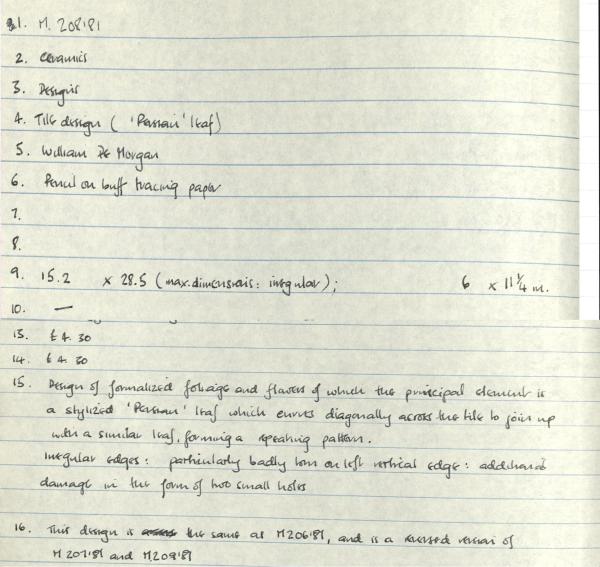 1. M. 208'81
2. Ceramics
3. Designs
4. Tile design ( 'Persian' leaf)
5. William De Morgan
6. Pencil on buff tracing paper
7.
8.
9. 15.2 x 28.5 (max. dimensions: irregular); 6 x 11 1/4 in.
10. —
13. £4.30
14. £4.30
15. Design of formalized foliage and flowers of which the principal element is
a stylized 'Persian' leaf which curves diagonally across the tile to join up
with a similar leaf, forming a repeating pattern.
Irregular edges: particularly badly torn on left vertical edge: additional
damage in the form of two small holes
16. This design is the same as M206'81, and is a reversed version of
M.207'81 and M209'81